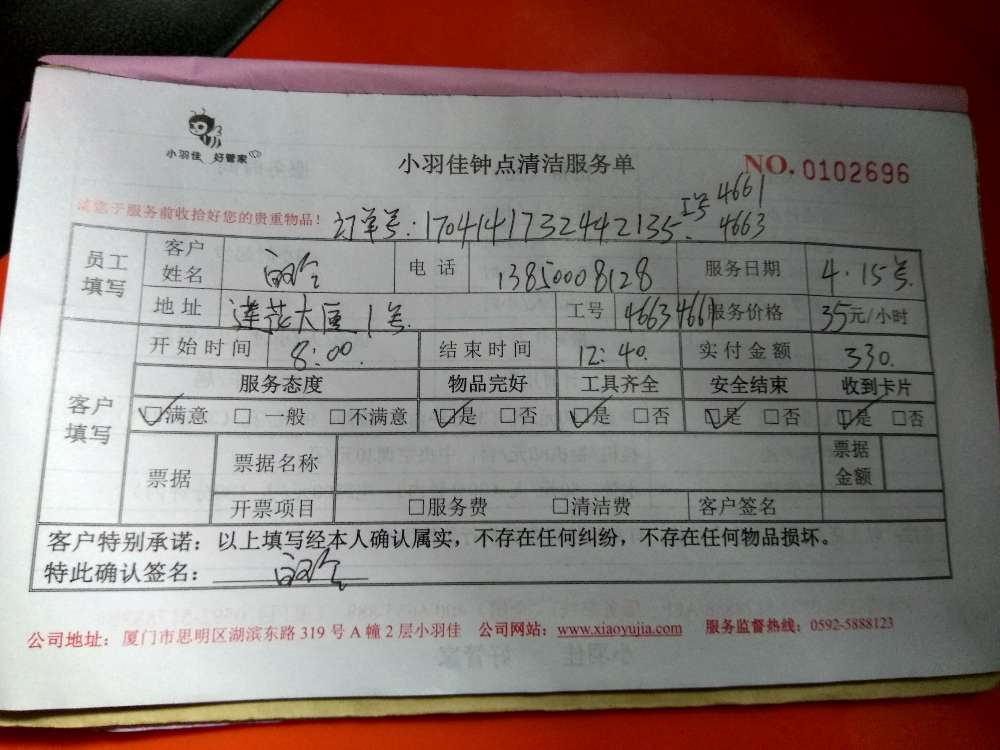 小羽佳 好管家
小羽佳钟点清洁服务单
NO. 0102696
请您于服务前收拾好您的贵重物品！
订单号：1704141732442135. 工号 4661
4663
员工填写 客户姓名 电话 13850008128 服务日期 4.15号
地址 莲花大厦1号 工号 4663 4661 服务价格 35元/小时
客户填写 开始时间 8:00. 结束时间 12:40. 实付金额 330.
服务态度 物品完好 工具齐全 安全结束 收到卡片
☑满意 □一般 □不满意 ☑是 □否 ☑是 □否 ☑是 □否 ☑是 □否
票据 票据名称 票据金额
开票项目 □服务费 □清洁费 客户签名
客户特别承诺：以上填写经本人确认属实，不存在任何纠纷，不存在任何物品损坏。
特此确认签名：
公司地址：厦门市思明区湖滨东路319号A幢2层小羽佳 公司网站：www.xiaoyujia.com 服务监督热线：0592-5888123